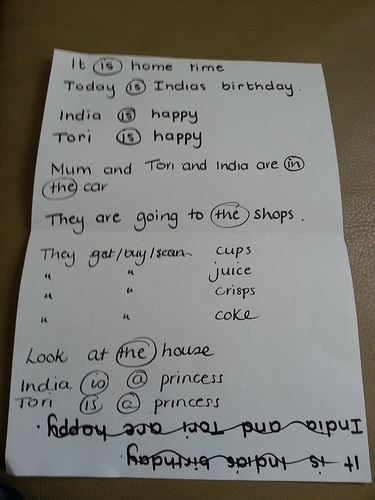 It is home time
Today is Indias birthday.
India is happy
Tori is happy
Mum and Tori and India are in
the car
They are going to the shops.
They get/buy/scan cups
" " juice
" " crisps
" " coke
Look at the house
India is a princess
Tori is a princess
India and Tori are happy.
It is Indias birthday